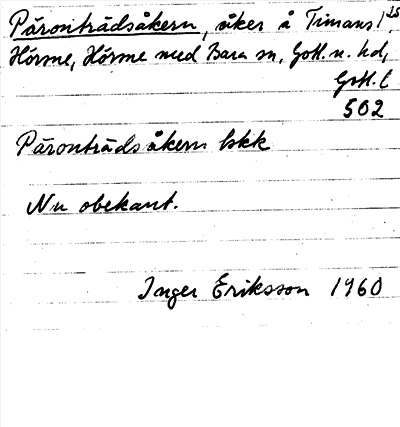 Päronträdsåkern, åker å Timans 1²⁵,
Hörsne, Hörsne med Bara sn, Gotl. n. hd,
Gotl. l
502
Päronträdsåkern bkk
Nu obekant.
Inger Eriksson 1960